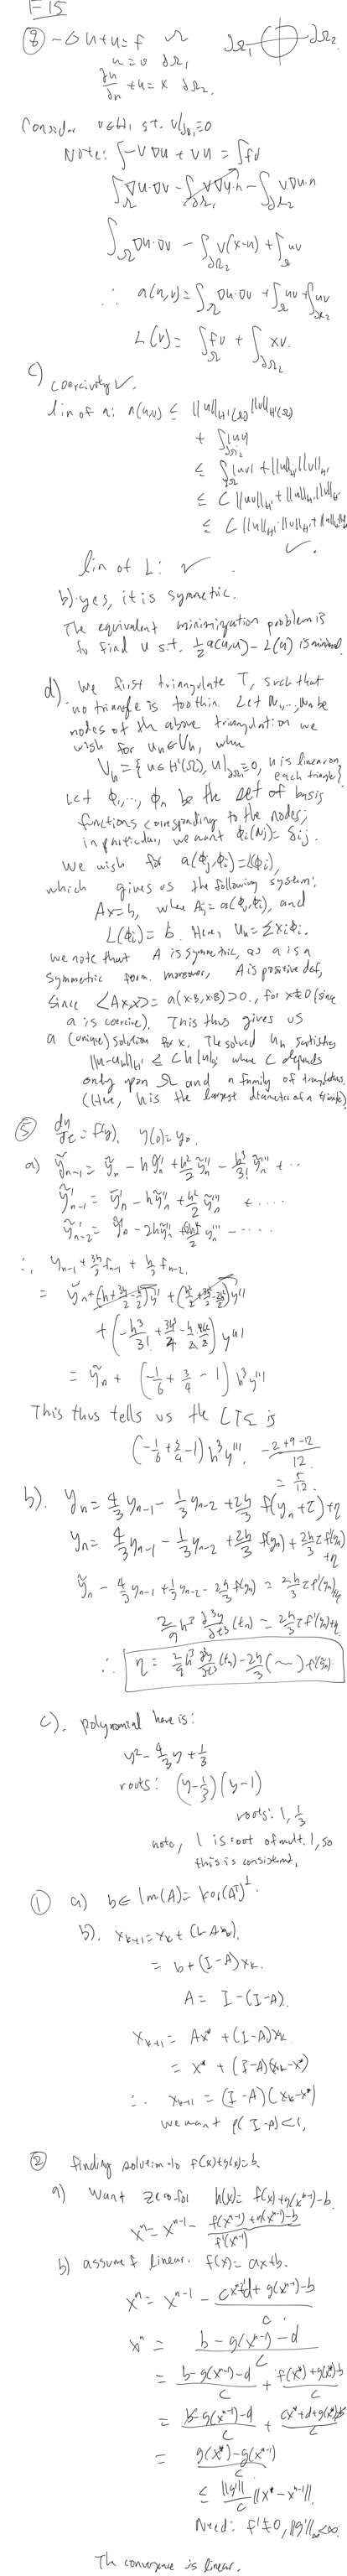 F15
⑧ -Δu+u=f Ω ∂Ω₁ ∂Ω₂
u=0 ∂Ω₁
∂u/∂n +u=x ∂Ω₂.
Consider v∈H₁ s.t. v|∂Ω₁≡0
Note: ∫-vΔu + vu = ∫fv
∫_Ω ∇u·∇v - ∫_∂Ω₁ v∇u·n - ∫_∂Ω₂ v∇u·n
∫_Ω ∇u·∇v - ∫_∂Ω₂ v(x-u) + ∫_Ω uv
∴ a(u,v) = ∫_Ω ∇u·∇v + ∫_Ω uv + ∫_∂Ω₂ uv
L(v) = ∫_Ω fv + ∫_∂Ω₂ xv.
c) coercivity ✓.
lin of a: a(u,v) ≤ ||u||_H¹(Ω) ||v||_H¹(Ω)
+ ∫_∂Ω₂ |uv|
≤ ∫_∂Ω |uv| + ||u||_H¹ ||v||_H¹
≤ C ||uv||_H¹ + ||u||_H¹ ||v||_H¹
≤ C ||u||_H¹ ||v||_H¹ + ||u||_H¹ ||v||_H¹
✓.
lin of L: ✓
b) yes, it is symmetric.
The equivalent minimization problem is
to find u s.t. ½a(u,u) - L(u) is minimal.
d) We first triangulate T, such that
no triangle is too thin. Let N₁,...,Nn be
nodes of the above triangulation we
wish for uₙ∈Vₕ, when
Vₕ = {u∈H¹(Ω), u|∂Ω₁≡0, u is linear on
each triangle}
Let ϕ₁,...,ϕn be the set of basis
functions corresponding to the nodes;
in particular, we want ϕi(Nj)=δij.
We wish for a(ϕj,ϕi)=L(ϕi),
which gives us the following system:
Ax=b, where Aij=a(ϕi,ϕj), and
L(ϕi) = b. Here, uₕ = Σxiϕi.
we note that A is symmetric, as a is a
symmetric form. moreover, A is positive def,
since <Ax,x> = a(x·B,x·B)>0., for x≠0 (since
a is coercive). This thus gives us
a (unique) solution for x. The solved uₕ satisfies
||u-uₕ||_H¹ ≤ Ch|u|₂, where C depends
only upon Ω and a family of triangulations.
(Here, h is the largest diameter of a triangle).
⑤ dy/dt = f(y), y(0)=y₀.
a) ỹn-1 = ỹn - hỹ'n + h²/2 ỹ''n - h³/3! ỹ'''n + ...
ỹ'n-1 = ỹ'n - hỹ''n + h²/2 ỹ'''n + ....
ỹ'n-2 = ỹ'n - 2hỹ''n + 4h²/2 ỹ'''n - .....
∴, yn-1 + 3h/2 fn-1 + h/2 fn-2
= ỹn + (-h+3h/2-h/2)y' + (h²/2+3h²/2-2h²/2)y''
+ (-h³/3! + 3h³/4 - h/2 4h²/2) y'''
= ỹn + (-1/6 + 3/4 - 1) h³y'''
This thus tells us the LTE is
(-1/6+3/4-1)h³y'''. -2+9-12 / 12
= 5/12.
b). yn = 4/3 yn-1 - 1/3 yn-2 + 2h/3 f(yn+τ)+η
yn = 4/3 yn-1 - 1/3 yn-2 + 2h/3 f(yn) + 2h/3 τf'(yn)
+η
ỹn - 4/3 yn-1 + 1/3 yn-2 - 2h/3 f(yn) = 2h/3 τf'(yn)+η
2/9 h³ ∂³y/∂t³ (tn) = 2h/3 τf'(yn)+η.
∴ η = 2/9 h³ ∂³y/∂t³ (tn) - 2h/3 (~) f'(yn).
c). polynomial here is:
y² - 4/3 y + 1/3
roots: (y-1/3)(y-1)
roots: 1, 1/3
note, 1 is root of mult. 1, so
this is consistent.
① a) b∈ Im(A) = ker(Aᵀ)⊥.
b). xk+1 = xk + (b-Axk).
= b+(I-A)xk.
A = I-(I-A).
xk+1 = Ax* + (I-A)xk
= x* + (I-A)(xk-x*)
∴ xk+1 = (I-A)(xk-x*)
we want ρ(I-A)<1,
② finding solution to f(x)+g(x)=b.
a) Want zero for h(x) = f(x)+g(xⁿ⁻¹)-b.
xⁿ = xⁿ⁻¹ - f(xⁿ⁻¹)+g(xⁿ⁻¹)-b / f'(xⁿ⁻¹)
b) assume f linear. f(x) = ax+b.
xⁿ = xⁿ⁻¹ - cxⁿ⁻¹+d+g(xⁿ⁻¹)-b / c
xⁿ = b-g(xⁿ⁻¹)-d / c
= b-g(xⁿ⁻¹)-d / c + f(x*)+g(x*)-b / c
= b-g(xⁿ⁻¹)-d / c + cx*+d+g(x*)-b / c
= g(x*)-g(xⁿ⁻¹) / c
≤ ||g'|| / c ||x*-xⁿ⁻¹||.
Need: f'≠0, ||g'||∞<∞.
The convergence is linear.